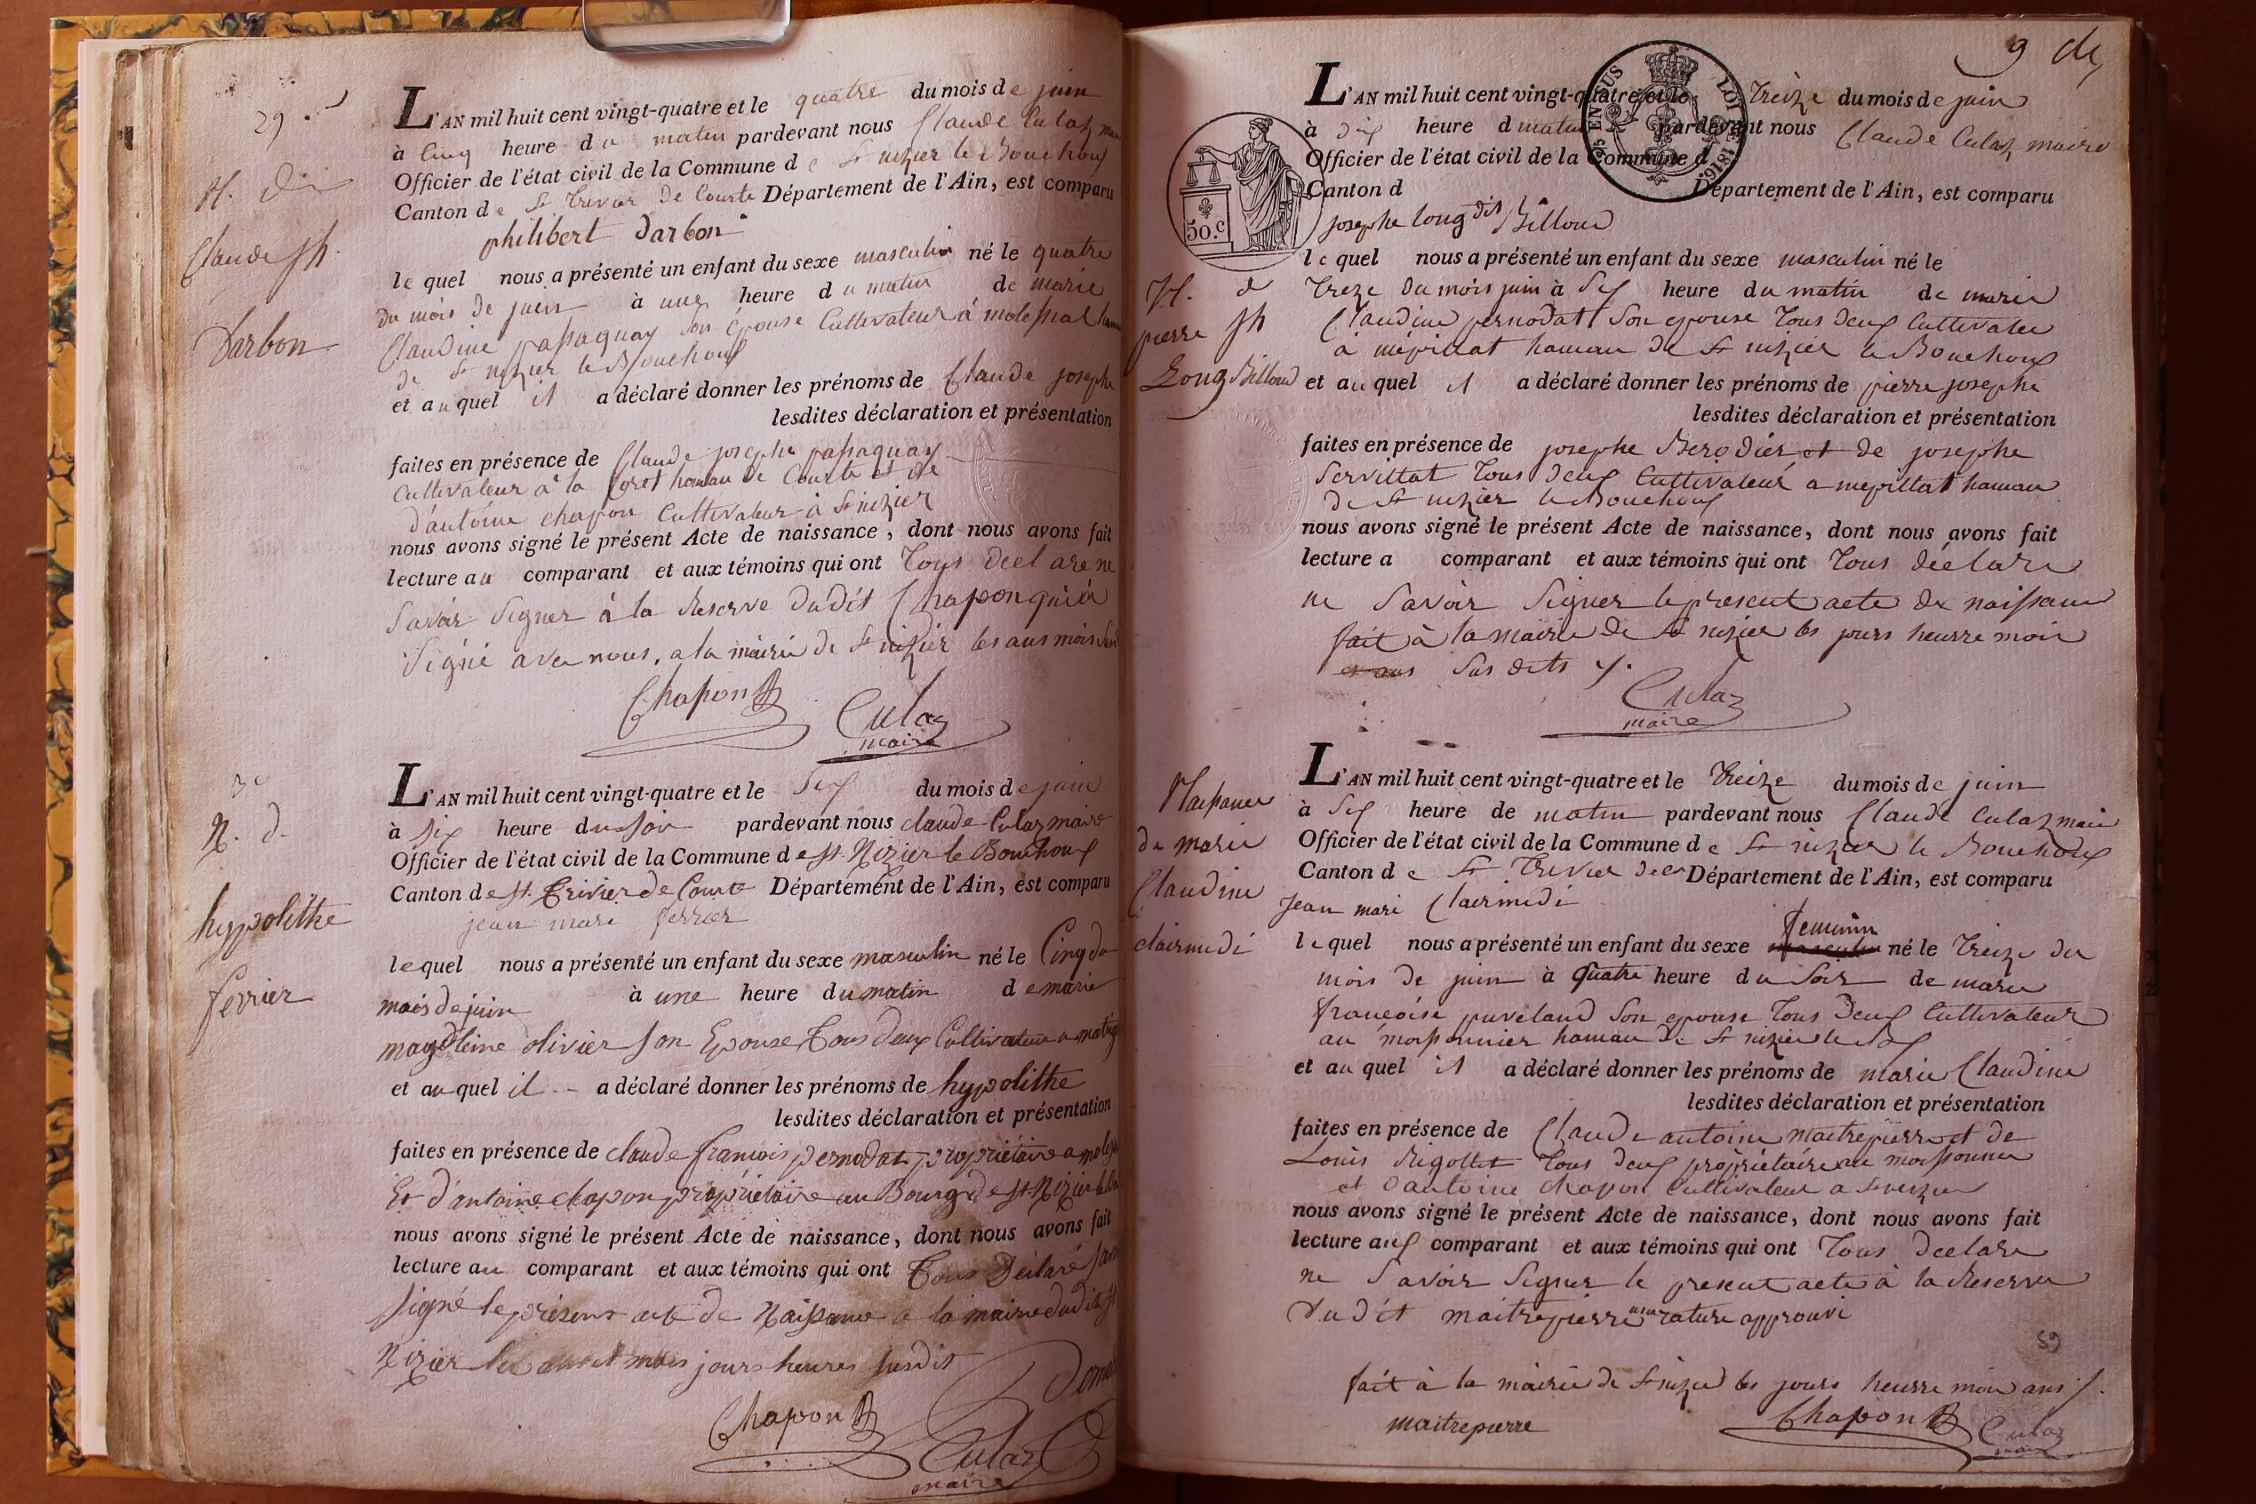 29.
N. d
Claude jh.
Darbon
L'AN mil huit cent vingt-quatre et le quatre du mois de juin
à cinq heure du matin pardevant nous Claude Culaz
Officier de l'état civil de la Commune de St nizier le Bouchoux
Canton de St trivier De Courte Département de l'Ain, est comparu
philibert Darbon
le quel nous a présenté un enfant du sexe masculin né le quatre
du mois de juin à une heure du matin de marie
Claudine passaquay son épouse Cultivateur à
de St nizier le Bouchoux
et auquel il a déclaré donner les prénoms de Claude josephe
lesdites déclaration et présentation
faites en présence de Claude josephe passaquay
Cultivateur à la hamau de Courte et de
d'antoine chapon Cultivateur à St nizier
nous avons signé le présent Acte de naissance, dont nous avons fait
lecture au comparant et aux témoins qui ont tous declare ne
Savoir Signer à la Reserve dudit Chapon qui à
Signé avec nous, a la mairie de St nizier les ans mois
Chapon
Culaz
maire
30
N. d.
hypolithe
ferrier
L'AN mil huit cent vingt-quatre et le Six du mois de juin
à six heure du soir pardevant nous claude Culaz maire
Officier de l'état civil de la Commune de st Nizier le Bouchoux
Canton de st. Trivier de Courte Département de l'Ain, est comparu
jean mari ferrier
lequel nous a présenté un enfant du sexe masculin né le Cinq du
mois de juin à une heure du matin de marie
magdleine olivier son Epouse Tous deux Cultivateur a
et auquel il a déclaré donner les prénoms de hypolithe
lesdites déclaration et présentation
faites en présence de claude francois pernodat propriétaire a
Et d'antoine chapon propriétaire au Bourg de st Nizier
nous avons signé le présent Acte de naissance, dont nous avons fait
lecture au comparant et aux témoins qui ont Tous Déclaré
signé le présent acte de Naissance a la mairie dudit st
Nizier les an et mois jours heures susdit
Chapon
Culaz
maire
9
EN SUS LOI DE 1816.
50.c
N. d
pierre jh
Long Billoud
L'AN mil huit cent vingt-quatre et le treize du mois de juin
à Six heure du matin pardevant nous Claude Culaz maire
Officier de l'état civil de la Commune d
Canton d Département de l'Ain, est comparu
josephe long dit Billoud
le quel nous a présenté un enfant du sexe masculin né le
treze du mois juin à Six heure du matin de marie
Claudine pernodat Son epouse tous deux Cultivateur
à mépillat hamau de St nizier le Bouchoux
et auquel il a déclaré donner les prénoms de pierre josephe
lesdites déclaration et présentation
faites en présence de josephe Berodier et de josephe
Servillat tous deux Cultivateur a mepillat hamau
de St nizier le Bouchoux
nous avons signé le présent Acte de naissance, dont nous avons fait
lecture a comparant et aux témoins qui ont tous déclare
ne Savoir Signer le present acte de naissance
fait à la mairie de St nizier les jours heurre mois
et ans Sus dits
Culaz
maire
Naissance
de marie
Claudine
clairmidi
L'AN mil huit cent vingt-quatre et le treize du mois de juin
à Six heure de matin pardevant nous Claude Culaz maire
Officier de l'état civil de la Commune de St nizier le Bouchoux
Canton de St trivier Département de l'Ain, est comparu
jean mari Clairmidi
feminin
lequel nous a présenté un enfant du sexe masculin né le treize du
mois de juin à quatre heure du Soir de marie
francoise puveland Son epouse tous deux Cultivateur
au moissonnier hamau de St nizier le
et auquel il a déclaré donner les prénoms de marie Claudine
lesdites déclaration et présentation
faites en présence de Claude antoine maitrepierre et de
Louis Rigollet tous deux propriétaire au moissonnier
et d'antoine chapon Cultivateur a St nizier
nous avons signé le présent Acte de naissance, dont nous avons fait
lecture aux comparant et aux témoins qui ont tous declare
ne Savoir Signer le present acte à la Reserve
du dit maitrepierre une rature approuvé
59
fait à la mairie de St nizier les jours heurre mois ans
maitrepierre
Chapon
Culaz
maire